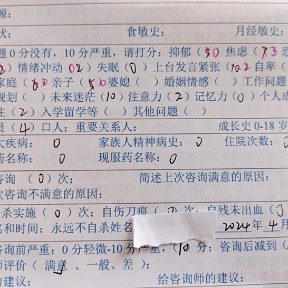 源:
状: 食敏史: 月经敏史:
题0分没有,10分严重,请打分:抑郁( 50 焦虑(
)情绪冲动 02 )失眠( 0 )上台发言紧张( 10 2 自卑(
家庭( 亲子( 婆媳( )婚姻情感( )工作问题
规划( )未来迷茫( 10 )注意力( 2 )记忆力( 0 )个人成
性( 2 )入学留学等( )其他问题( )
员( 4 )口人:重要关系人: 成长史0-18岁
大疾病: 0 家族人精神病史: 0 住院次数:
药名称: 0 现服药名称: 0
咨询( 0 )次: 简述上次咨询满意的原因:
次咨询不满意的原因:
杀实施( 0 )次;自伤刀痕( )次,自残未出血(
名和时间:永远不自杀姓名 2024年4月
咨询前严重:0分轻微-10分严重, 10 分;咨询后减到(
师评价(满意、一般、差);
的建议: 给咨询师的建议: